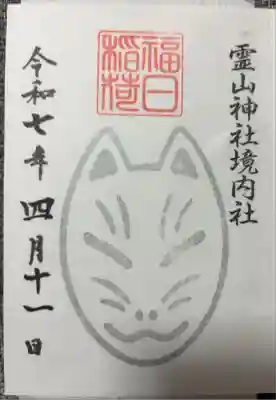 霊山神社境内社
福日稲荷
令和七年四月十一日